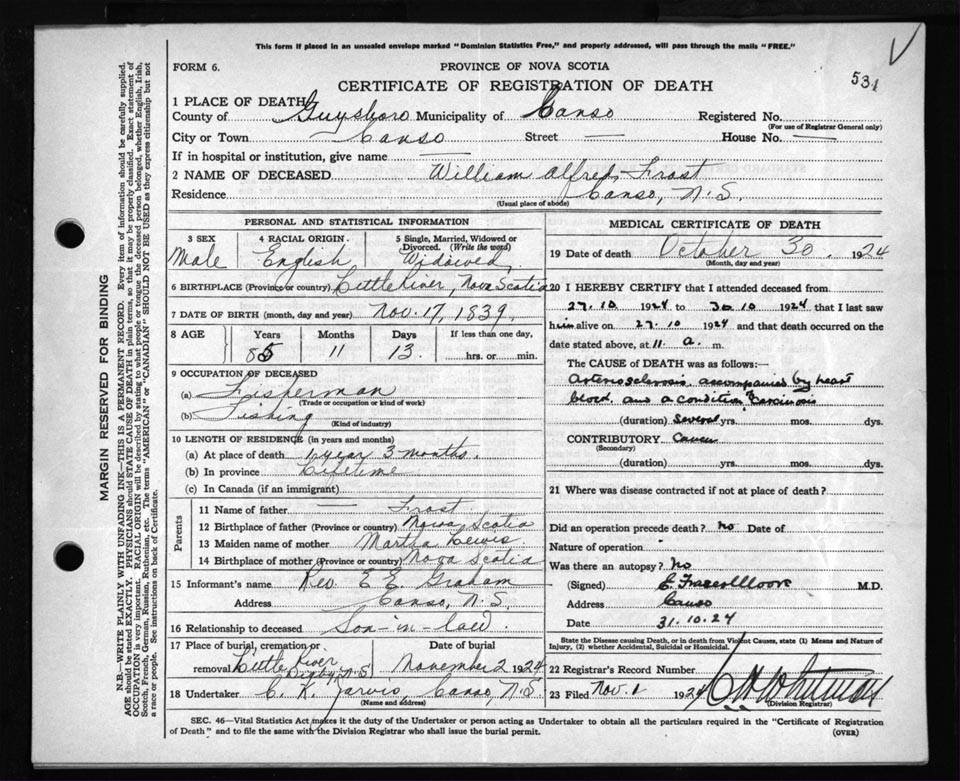 This form if placed in an unsealed envelope marked "Dominion Statistics Free," and properly addressed, will pass through the mails "FREE."
FORM 6.
PROVINCE OF NOVA SCOTIA
531
CERTIFICATE OF REGISTRATION OF DEATH
1 PLACE OF DEATH
County of Guysboro Municipality of Canso Registered No.
(For use of Registrar General only)
City or Town Canso Street — House No. —
If in hospital or institution, give name —
2 NAME OF DECEASED William Alfred Frost
Residence Canso, N.S.
(Usual place of abode)
PERSONAL AND STATISTICAL INFORMATION
3 SEX 4 RACIAL ORIGIN. 5 Single, Married, Widowed or Divorced. (Write the word)
Male English Widowed
6 BIRTHPLACE (Province or country) Little River, Nova Scotia
7 DATE OF BIRTH (month, day and year) Nov. 17, 1839.
8 AGE Years Months Days If less than one day,
85 11 13. hrs. or min.
9 OCCUPATION OF DECEASED
(a) Fisherman
(Trade or occupation or kind of work)
(b) Fishing
(Kind of industry)
10 LENGTH OF RESIDENCE (in years and months)
(a) At place of death 1 year 3 months.
(b) In province Lifetime
(c) In Canada (if an immigrant)
Parents
11 Name of father — Frost
12 Birthplace of father (Province or country) Nova Scotia
13 Maiden name of mother Martha Lewis
14 Birthplace of mother (Province or country) Nova Scotia
15 Informant's name Rev. E E Graham
Address Canso, N.S.
16 Relationship to deceased Son-in-law
17 Place of burial, cremation or Date of burial
removal Little River, Digby N.S November 2 1924
18 Undertaker C. K. Jarvis, Canso, N.S
(Name and address)
MEDICAL CERTIFICATE OF DEATH
19 Date of death October 30, 1924
(Month, day and year)
20 I HEREBY CERTIFY that I attended deceased from
27.10 1924 to 30.10 1924 that I last saw
him alive on 27.10 1924 and that death occurred on the
date stated above, at 11. a. m.
The CAUSE of DEATH was as follows:—
Arteriosclerosis, accompanied by heart
block, and a condition Carcinosis
(duration) Several yrs. mos. dys.
CONTRIBUTORY Cancer
(Secondary)
(duration) yrs. mos. dys.
21 Where was disease contracted if not at place of death?
Did an operation precede death? no Date of
Nature of operation
Was there an autopsy? no
(Signed) M.D.
Address Canso
Date 31.10.24
State the Disease causing Death, or in death from Violent Causes, state (1) Means and Nature of Injury, (2) whether Accidental, Suicidal or Homicidal.
22 Registrar's Record Number
23 Filed Nov. 1 1924 C H Whitman
(Division Registrar)
SEC. 46—Vital Statistics Act makes it the duty of the Undertaker or person acting as Undertaker to obtain all the particulars required in the "Certificate of Registration
of Death" and to file the same with the Division Registrar who shall issue the burial permit.
(OVER)
MARGIN RESERVED FOR BINDING
N.B.—WRITE PLAINLY WITH UNFADING INK—THIS IS A PERMANENT RECORD. Every item of information should be carefully supplied.
AGE should be stated EXACTLY. PHYSICIANS should STATE CAUSE OF DEATH in plain terms, so that it may be properly classified. Exact statement of
OCCUPATION is very important. RACIAL ORIGIN will be described by stating to what people or tongue the deceased person belonged, whether English, Irish,
Scotch, French, German, Russian, Ruthenian, etc. The terms "AMERICAN" or "CANADIAN" SHOULD NOT BE USED as they express citizenship but not
a race or people. See instructions on back of Certificate.